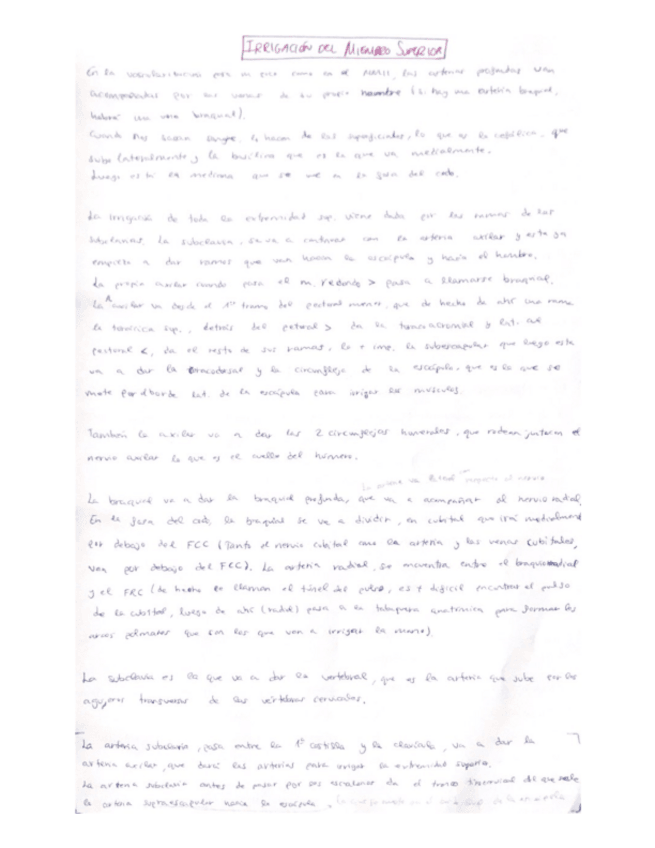 IRRIGACIÓN DEL MIEMBRO SUPERIOR
En la vascularización para en este como en el MMII, las arterias profundas van
acompañadas por sus venas de su propio nombre (si hay una arteria braquial,
habrá una vena braquial).
Cuando nos sacan sangre, lo hacen de las superficiales, lo que es la cefálica, que
sube lateralmente y la basílica que es la que va medialmente.
Luego está la mediana que se ve en la fosa del codo.
La irrigación de toda la extremidad sup. viene dada por las ramas de las
subclavias. La subclavia, se va a continuar con la arteria axilar y esta ya
empieza a dar ramas que van hacia la escápula y hacia el hombro.
La propia axilar cuando pasa el m. redondo > pasa a llamarse braquial.
La axilar va desde el 1er tramo del pectoral menor, que de hecho de ahí una rama
la torácica sup., detrás del pectoral > da la toracoacromial y lat. del
pectoral <, da el resto de sus ramas, lo + imp. la subescapular que luego esta
va a dar la toracodorsal y la circunfleja de la escápula, que es la que se
mete por el borde lat. de la escápula para irrigar los músculos.
También la axilar va a dar las 2 circunflejas humerales, que rodean junto con el
nervio axilar lo que es el cuello del húmero.
La braquial va a dar la braquial profunda, que va a acompañar al nervio radial.
En la fosa del codo, la braquial se va a dividir, en cubital que irá medialmente
por debajo del FCC (Tanto el nervio cubital como la arteria y las venas cubitales,
van por debajo del FCC). La arteria radial, se encuentra entre el braquiorradial
y el FRC (de hecho lo llaman el túnel del pulso, es + difícil encontrar el pulso
de la cubital, luego de ahí (radial) pasa a la tabaquera anatómica para formar los
arcos palmares que son los que van a irrigar la mano)
La subclavia es la que va a dar la vertebral, que es la arteria que sube por los
agujeros transversos de las vértebras cervicales.
La arteria subclavia, pasa entre la 1ª costilla y la clavícula, va a dar la
arteria axilar, que dará las arterias para irrigar la extremidad superior.
La arteria subclavia antes de pasar por los escalenos da el tronco tirocervical del que sale
la arteria supraescapular hacia la escápula.